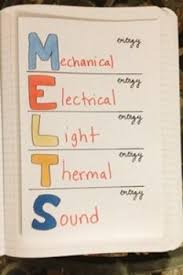 energy
Mechanical
energy
Electrical
energy
Light
energy
Thermal
energy
Sound